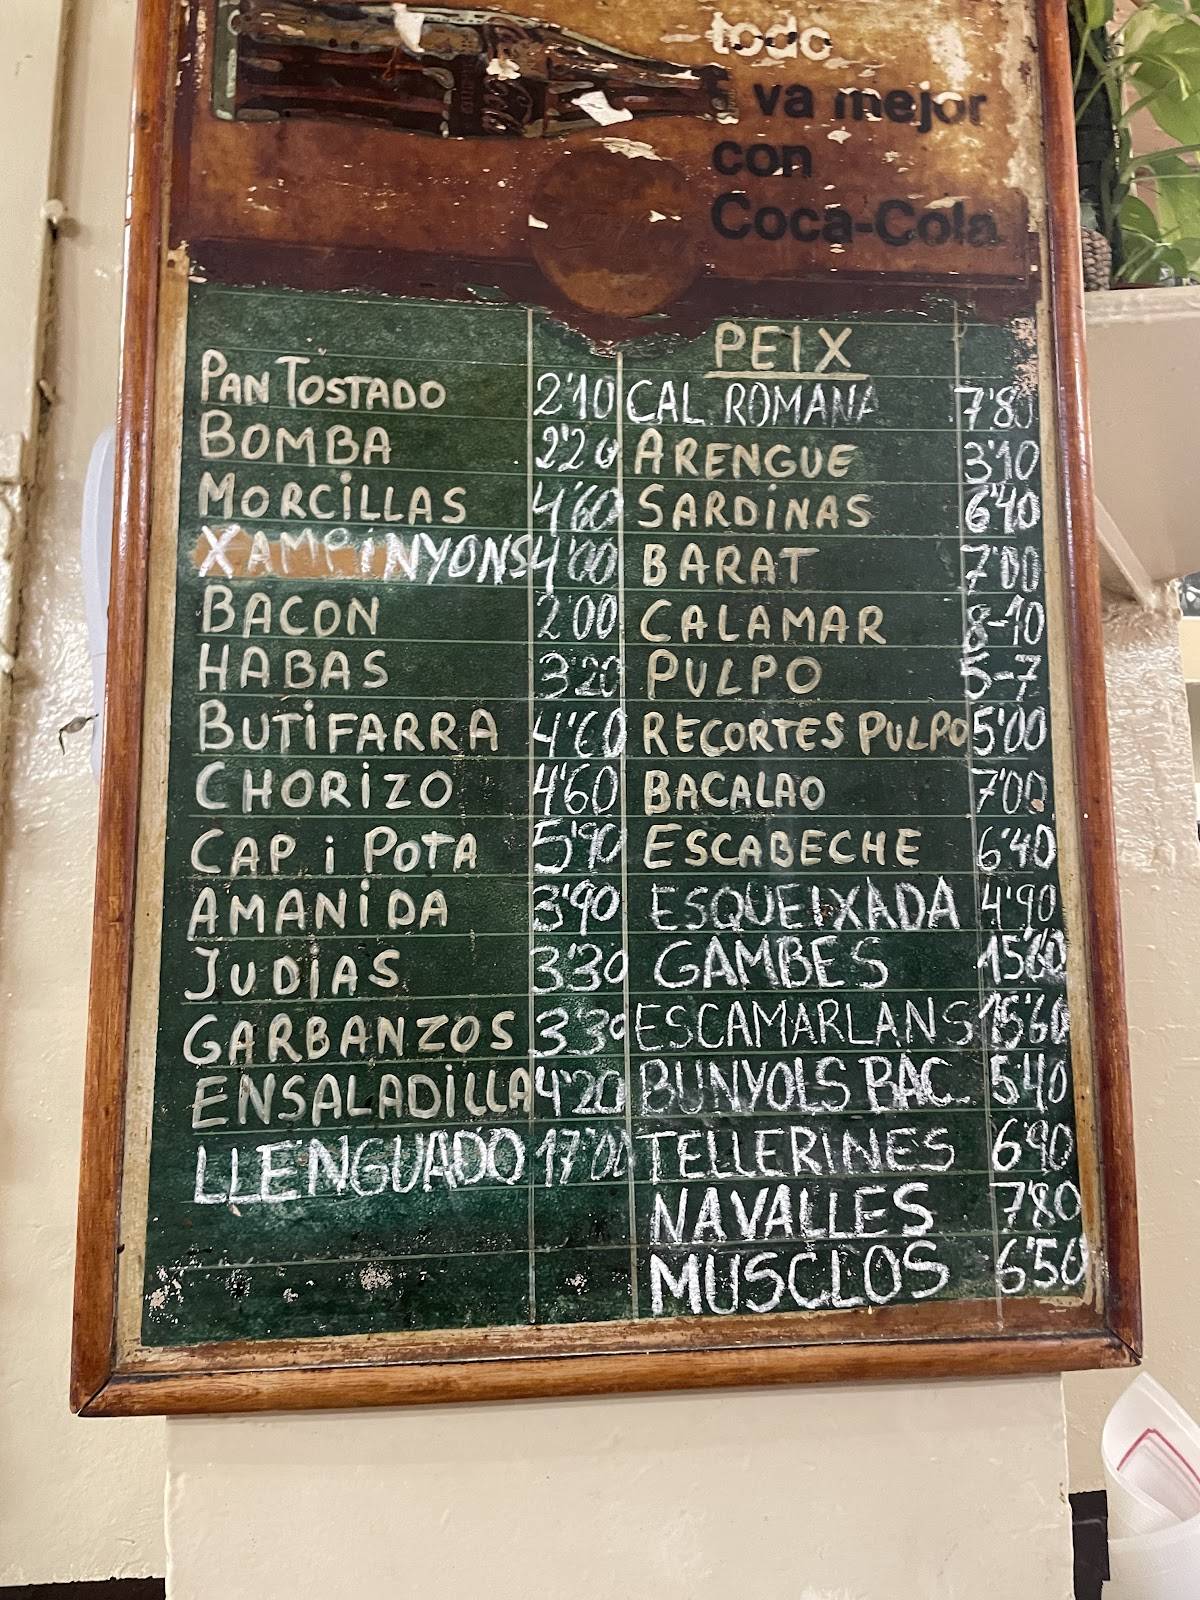 todo
va mejor
con
Coca-Cola
PAN TOSTADO 2'10
BOMBA 2'20
MORCILLAS 4'60
XAMPINYONS 4'00
BACON 2'00
HABAS 3'20
BUTIFARRA 4'60
CHORIZO 4'60
CAP i POTA 5'90
AMANIDA 3'90
JUDIAS 3'30
GARBANZOS 3'30
ENSALADILLA 4'20
LLENGUADO 17'00
PEIX
CAL. ROMANA 7'80
ARENGUE 3'10
SARDINAS 6'40
BARAT 7'00
CALAMAR 8-10
PULPO 5-7
RECORTES PULPO 5'00
BACALAO 7'00
ESCABECHE 6'40
ESQUEIXADA 4'90
GAMBES
ESCAMARLANS 15'60
BUNYOLS BAC. 5'40
TELLERINES 6'90
NAVALLES 7'80
MUSCLOS 6'50